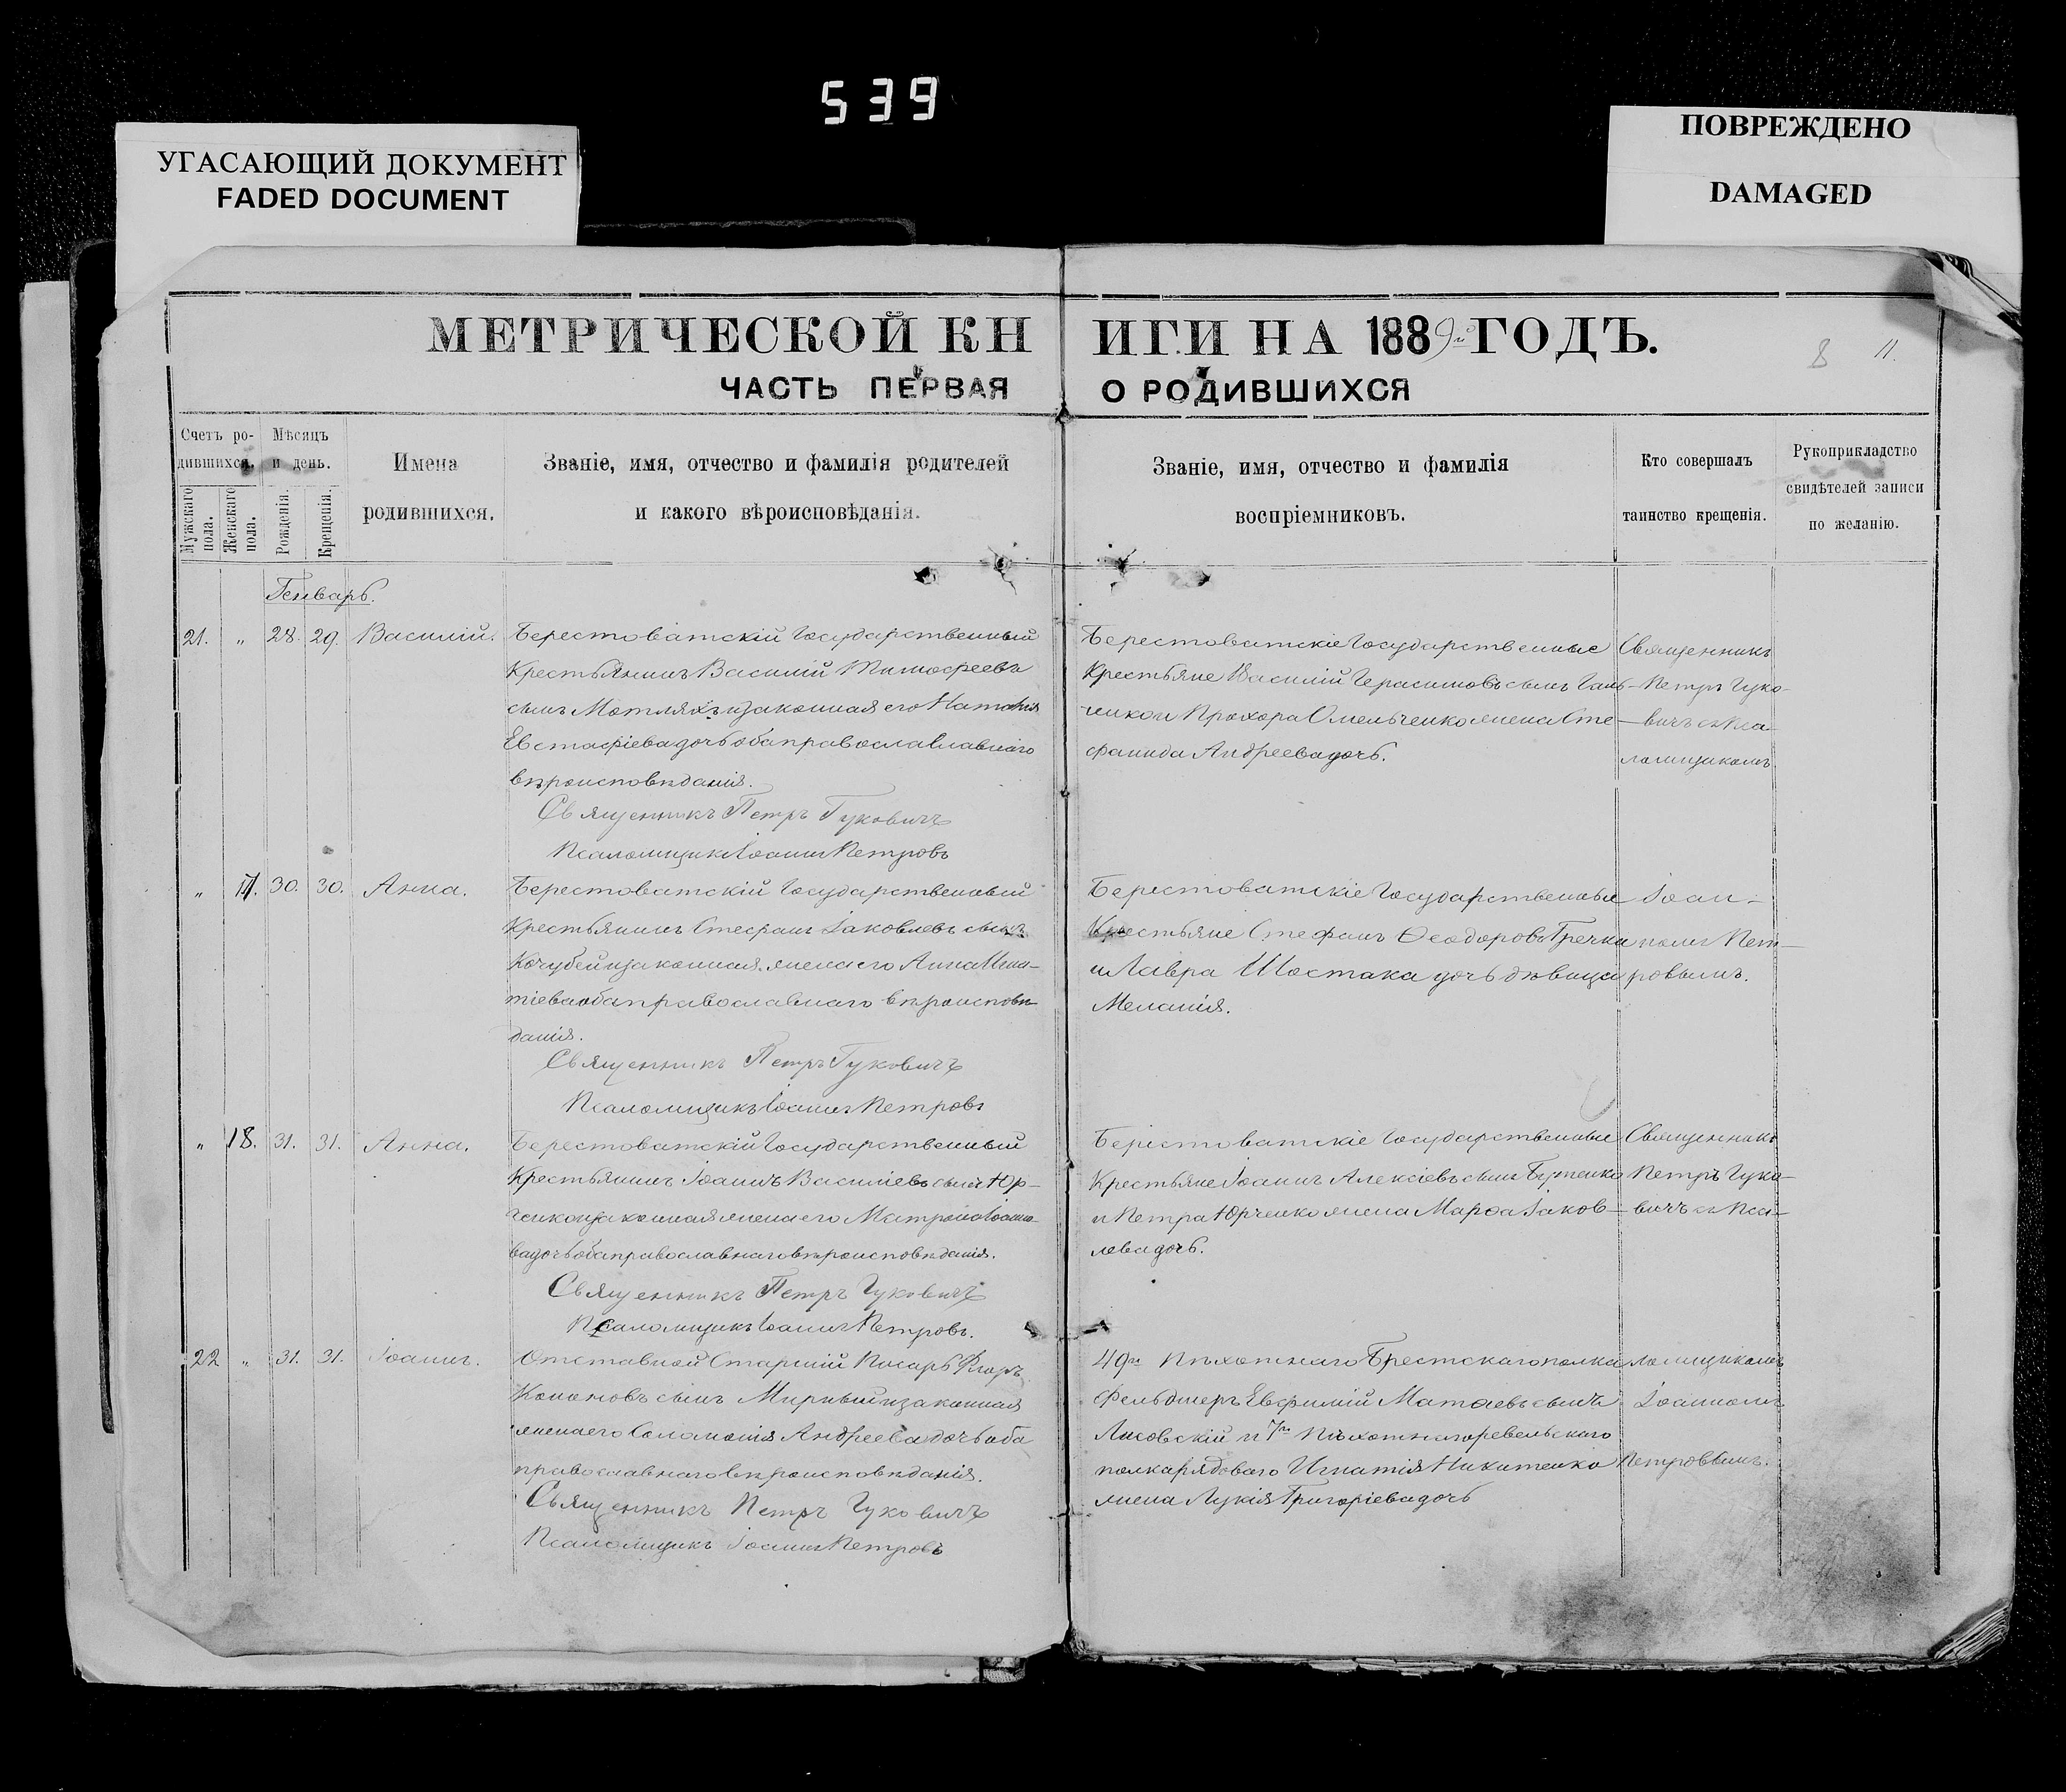 539
УГАСАЮЩИЙ ДОКУМЕНТ
FADED DOCUMENT
ПОВРЕЖДЕНО
DAMAGED
МЕТРИЧЕСКОЙ КН
ИГИ НА 1889й ГОДЪ.
8 11.
ЧАСТЬ ПЕРВАЯ
О РОДИВШИХСЯ
Счетъ ро-
дившихся.
Мужскаго пола.
Женскаго пола.
Мѣсяцъ
и день.
Рожденія.
Крещенія.
Имена
родившихся.
Званіе, имя, отчество и фамилія родителей
и какого вѣроисповѣданія.
Званіе, имя, отчество и фамилія
воспріемниковъ.
Кто совершалъ
таинство крещенія.
Рукоприкладство
свидѣтелей записи
по желанію.
Генварь.
21. " 28. 29. Василій.
Берестоватскій Государственный
Крестьянинъ Василій Тимофеевъ
сынъ Мотляхъ и законная его Наталія
Евстафіева дочь оба православнаго
вѣроисповѣданія.
Священникъ Петръ Гуковичъ
Псаломщикъ Іоаннъ Петровъ
Берестоватскіе Государственные
Крестьяне Василій Герасимовъ сынъ Гань-
ченко и Прохора Омельченко жена Сте-
фанида Андреева дочь.
Священникъ
Петръ Гуко-
вичъ съ Пса-
ломщикомъ
" 17. 30. 30. Анна.
Берестоватскій Государственный
Крестьянинъ Стефанъ Іаковлевъ сынъ
Кочубей и законная жена его Анна Игна-
тіева оба православнаго вѣроисповѣ-
данія.
Священникъ Петръ Гуковичъ
Псаломщикъ Іоаннъ Петровъ
Берестоватскіе Государственные
Крестьяне Стефанъ Ѳеодоровъ Гречка
и Лавра Шостака дочь дѣвица
Меланія.
Іоан-
номъ Пет-
ровымъ.
" 18. 31. 31. Анна.
Берестоватскій Государственный
Крестьянинъ Іоаннъ Василіевъ сынъ Юр-
ченко и законная жена его Матрона Іоанно-
ва дочь оба православнаго вѣроисповѣданія.
Священникъ Петръ Гуковичъ
Псаломщикъ Іоаннъ Петровъ.
Берестоватскіе Государственные
Крестьяне Іоаннъ Алексіевъ сынъ
и Петра Юрченко жена Марѳа Іаков-
лева дочь.
Священникъ
Петръ Гуко-
вичъ съ Пса-
22 " 31. 31. Іоаннъ.
Отставной Старшій Писарь
Кононовъ сынъ Мирный и законная
жена его Соломонія Андреева дочь оба
православнаго вѣроисповѣданія.
Священникъ Петръ Гуковичъ
Псаломщикъ Іоаннъ Петровъ
49го Пѣхотнаго Брестскаго полка
фельдшеръ Евфимій Матѳевъ сынъ
Лисовскій и 7го Пѣхотнаго Ревельскаго
полка рядоваго Игнатія Никитенко
жена Лукія Григоріева дочь
ломщикомъ
Іоанномъ
Петровымъ.